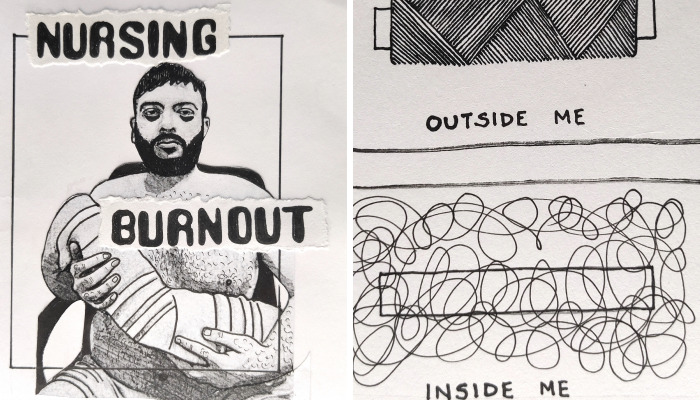 NURSING
BURNOUT
OUTSIDE ME
INSIDE ME